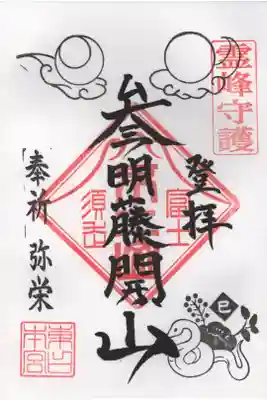 霊峰守護
登拝
参明藤開山
富士
須走
奉祈 弥栄
東口
本宮
巳